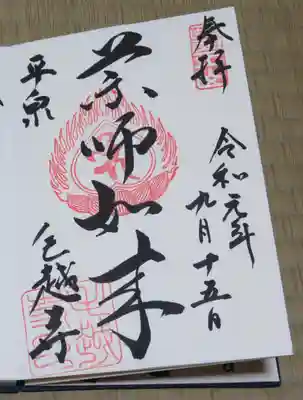 奉拝
令和元年九月十五日
薬師如来
平泉
毛越寺